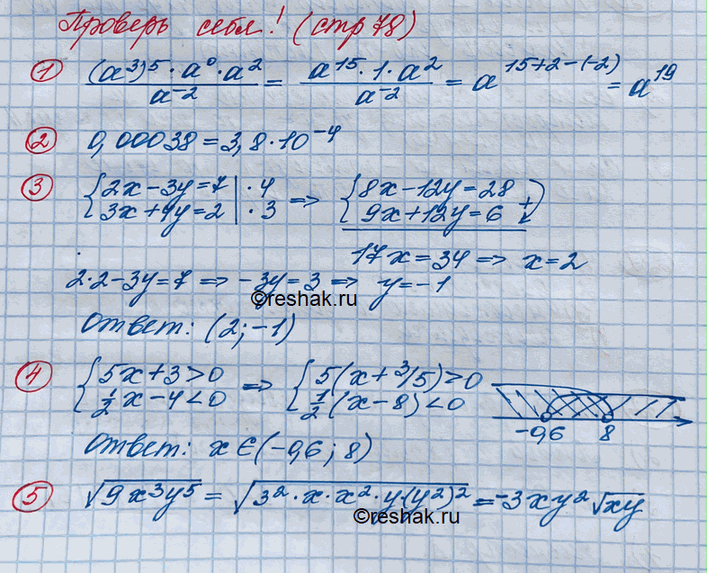 Проверь себя! (стр 78)
1 (a³)⁵·a⁰·a²/a⁻² = a¹⁵·1·a²/a⁻² = a¹⁵⁺²⁻⁽⁻²⁾ = a¹⁹
2 0,00038 = 3,8·10⁻⁴
3 {2x−3y=7 |·4 => {8x−12y=28
3x+4y=2 |·3 9x+12y=6 +
17x=34 => x=2
2·2−3y=7 => −3y=3 => y=−1
©reshak.ru
Ответ: (2;−1)
4 {5x+3>0 => {5(x+3/5)>0
½x−4<0 ½(x−8)<0
−0,6 8
Ответ: x∈(−0,6; 8)
5 √9x³y⁵ = √3²·x·x²·y(y²)² = −3xy²√xy
©reshak.ru